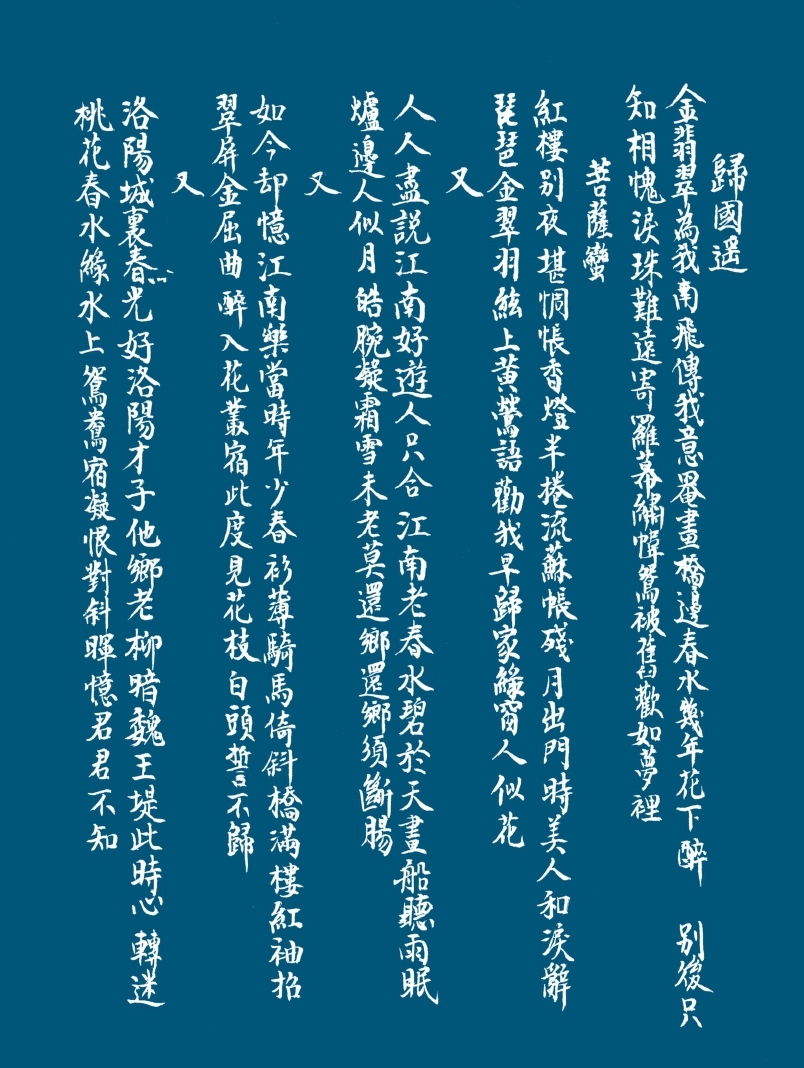 歸國遥
金翡翠為我南飛傳我意罨畫橋邊春水幾年花下醉 別後只
知相愧淚珠難遠寄羅幕繡幃鴛被舊歡如夢裡
菩薩蠻
紅樓别夜堪惆悵香燈半捲流蘇帳殘月出門時美人和淚辭
琵琶金翠羽絃上黄鶯語勸我早歸家緑窗人似花
又
人人盡説江南好遊人只合江南老春水碧於天畫船聽雨眠
爐邊人似月皓腕凝霜雪未老莫還鄉還鄉須斷腸
又
如今却憶江南樂當時年少春衫薄騎馬倚斜橋滿樓紅袖招
翠屏金屈曲醉入花叢宿此度見花枝白頭誓不歸
又
洛陽城裏春光好洛陽才子他鄉老柳暗魏王堤此時心轉迷
桃花春水緑水上鴛鴦宿凝恨對斜暉憶君君不知